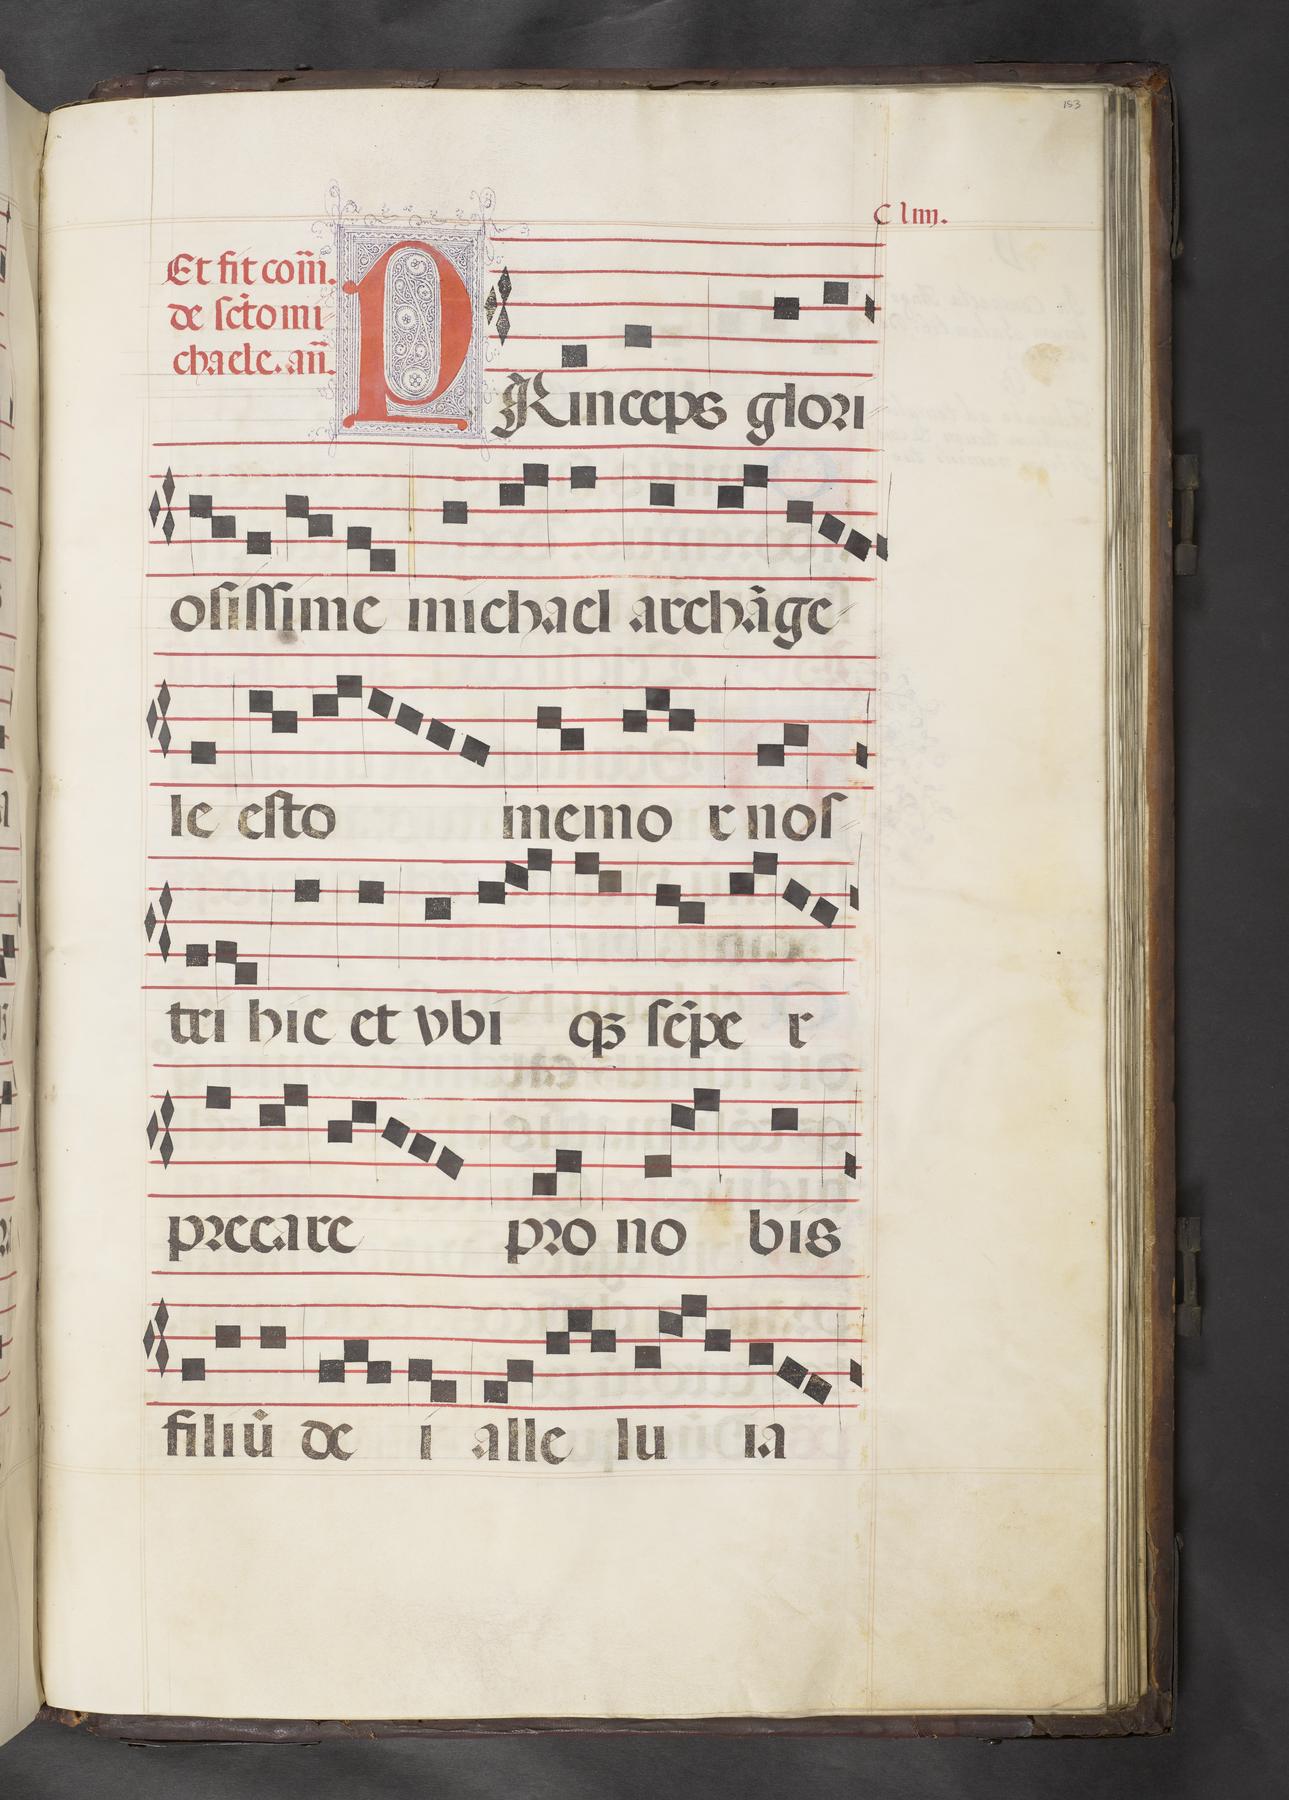 153
Cliiij.
Et fit com̄.
de sc̄to mi
chaele. an̄.
PRinceps glori
osissime michael archāge
le esto memo r nos
tri hic et vbi qꝫ sēpe r
precare pro no bis
filiū de i alle lu ia